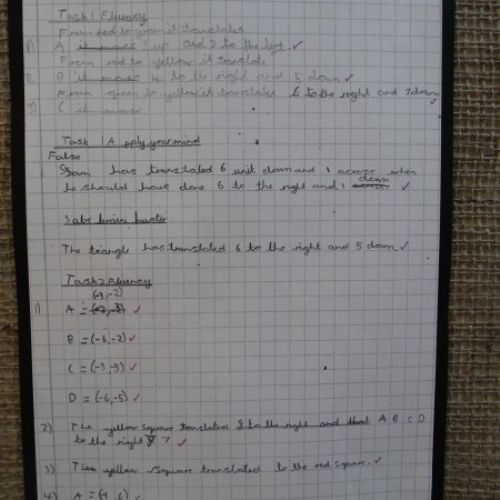 Task 1 Fluency
From red to green it translates
1) A it moves 2 up and 2 to the left.
From red to yellow it translate
2 B it moves 4 to the right and 5 down
From green to yellow it translates 6 to the right and 7 down
3) C it move
Task 1 Apply your mind
False
Sam has translated 6 unit down and 1 across when
he should have done 6 to the right and 1 down
Sats brain buster
The triangle has translated 6 to the right and 5 down.
Task 2 Fluency
(-3,-2)
1) A =
B = (-6,-2)
C = (-3,-5)
D = (-6,-5)
2) The yellow square translated to the right and that A B C D
to the right 7
3) The yellow square translated to the red square.
4) A =